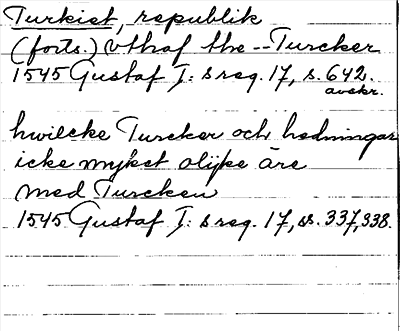 Turkiet, republik
(forts.) Vthaf the -- Turcker
1545 Gustaf I: s reg. 17, s. 642.
avskr.
hwilcke Turcker och hedningar
icke myket olijke äre
med Turcken
1545 Gustaf I: s reg. 17, ss. 337, 338.